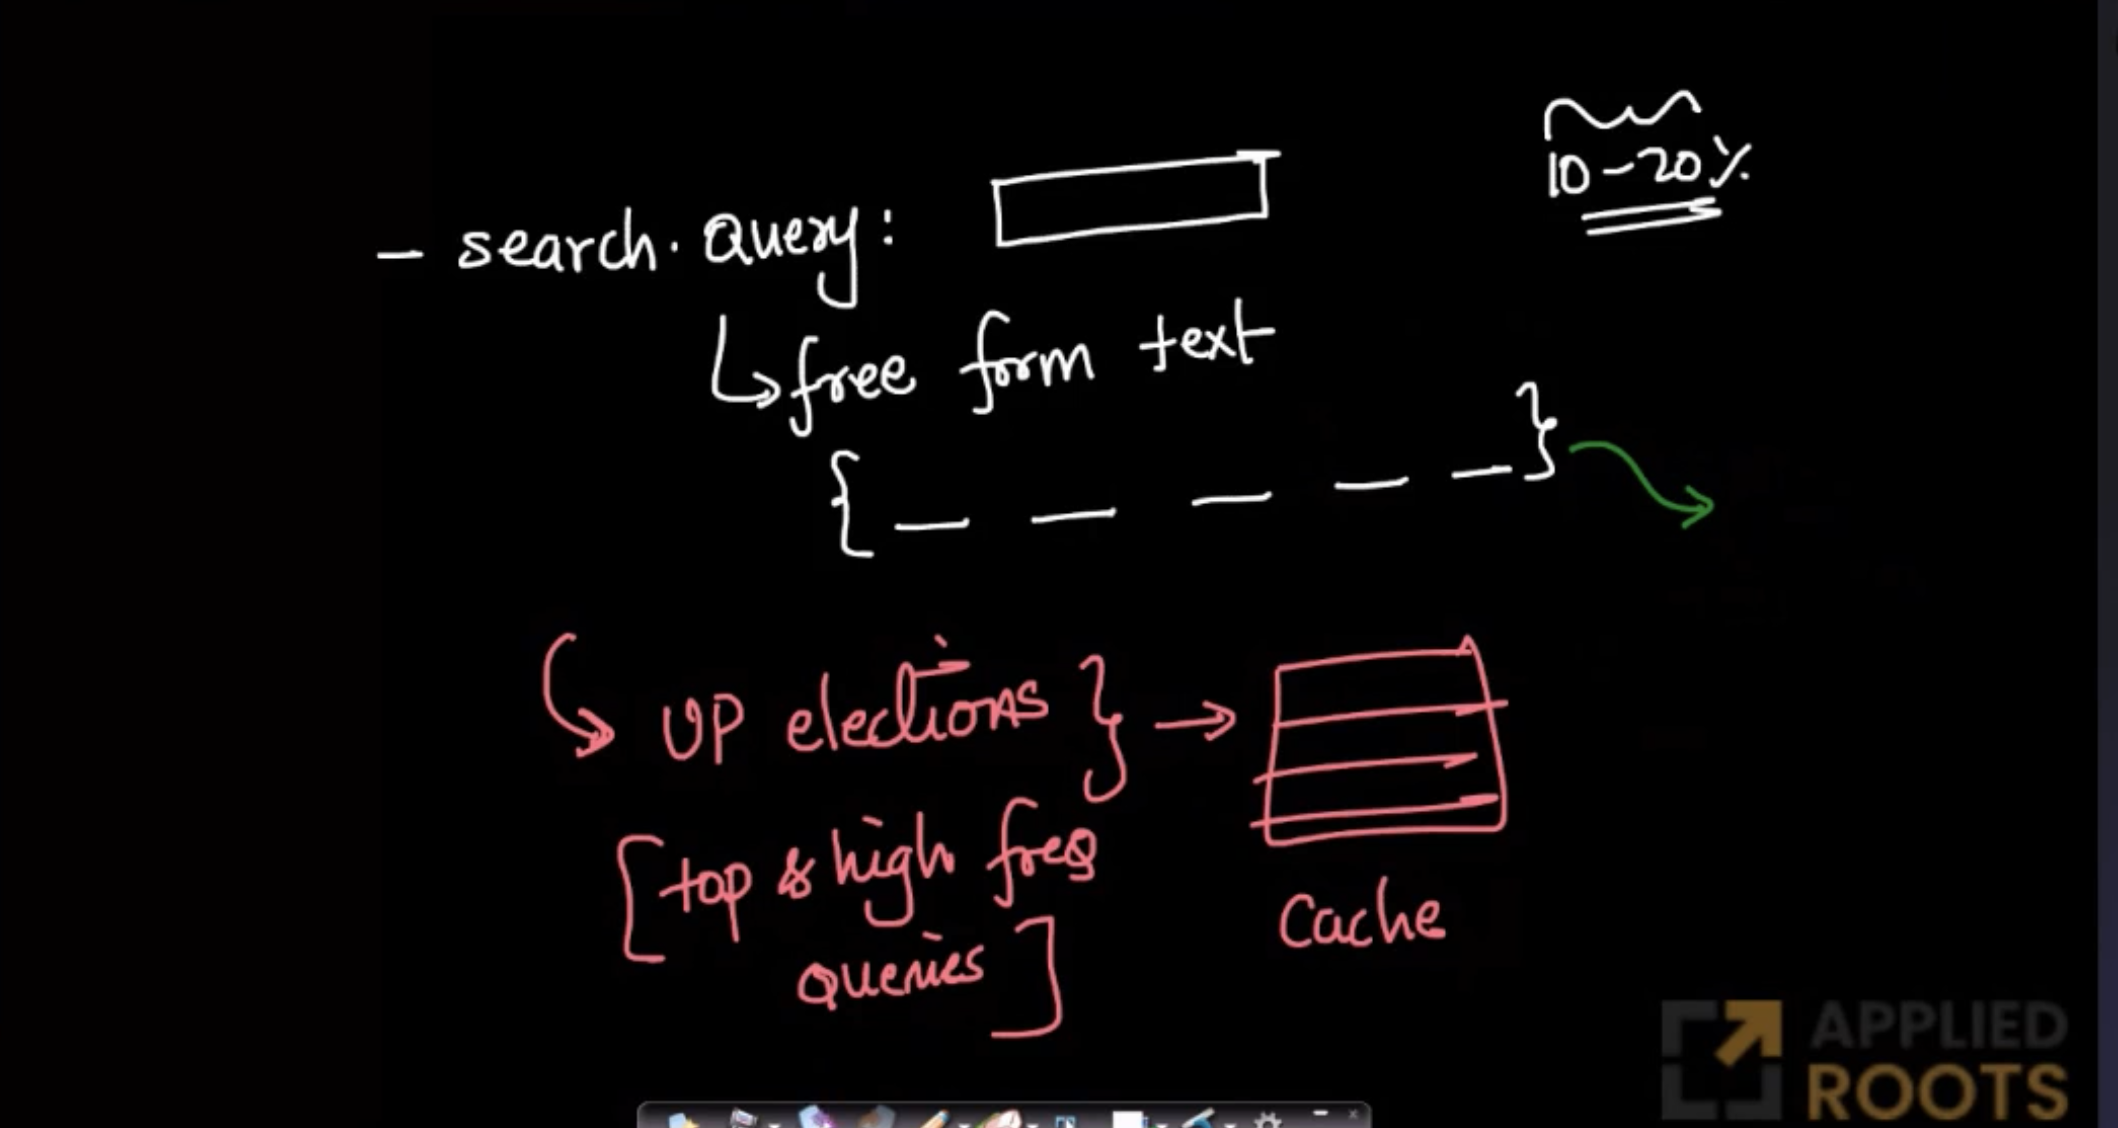 10-20%
- search. Query:
free form text
{ _ _ _ _ _ }
UP elections }
[top & high freq
queries]
Cache
APPLIED
ROOTS